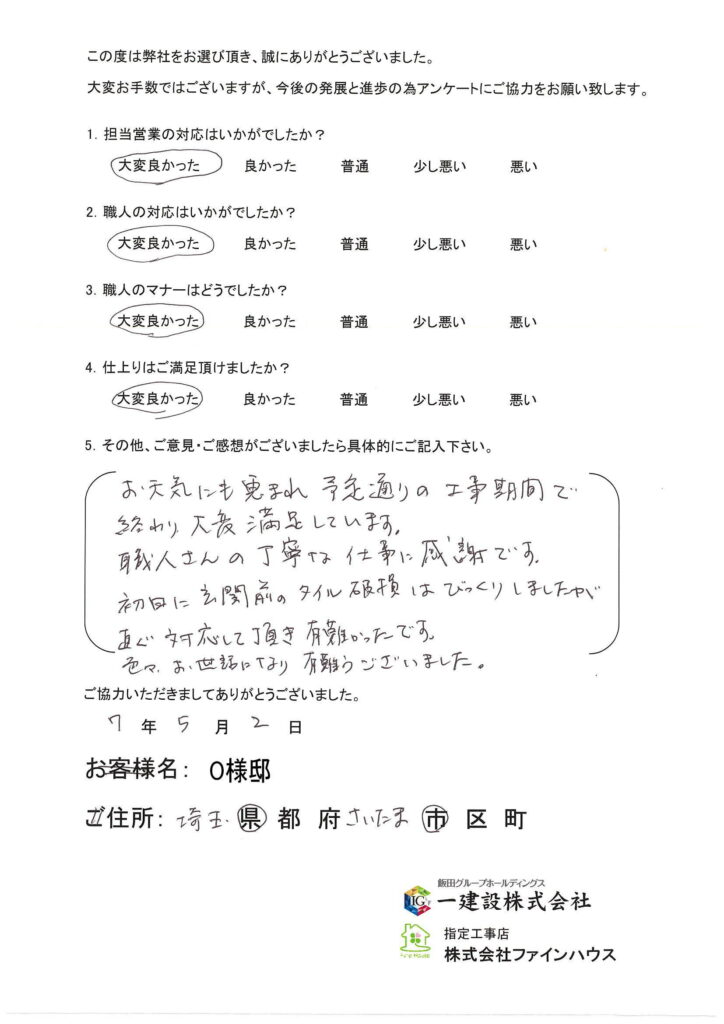 この度は弊社をお選び頂き、誠にありがとうございました。
大変お手数ではございますが、今後の発展と進歩の為アンケートにご協力をお願い致します。
1. 担当営業の対応はいかがでしたか？
大変良かった 良かった 普通 少し悪い 悪い
2. 職人の対応はいかがでしたか？
大変良かった 良かった 普通 少し悪い 悪い
3. 職人のマナーはどうでしたか？
大変良かった 良かった 普通 少し悪い 悪い
4. 仕上りはご満足頂けましたか？
大変良かった 良かった 普通 少し悪い 悪い
5. その他、ご意見・ご感想がございましたら具体的にご記入下さい。
お天気にも恵まれ 予定通りの工事期間で
終わり大変満足しています。
職人さんの丁寧な仕事に感謝です。
初日に玄関前のタイル破損はびっくりしましたが
直ぐ対応して頂き有難かったです。
色々、お世話になり有難うございました。
ご協力いただきましてありがとうございました。
7年5月2日
お客様名：O様邸
ご住所：埼玉県都府さいたま市区町
飯田グループホールディングス
IG 一建設株式会社
指定工事店
株式会社ファインハウス